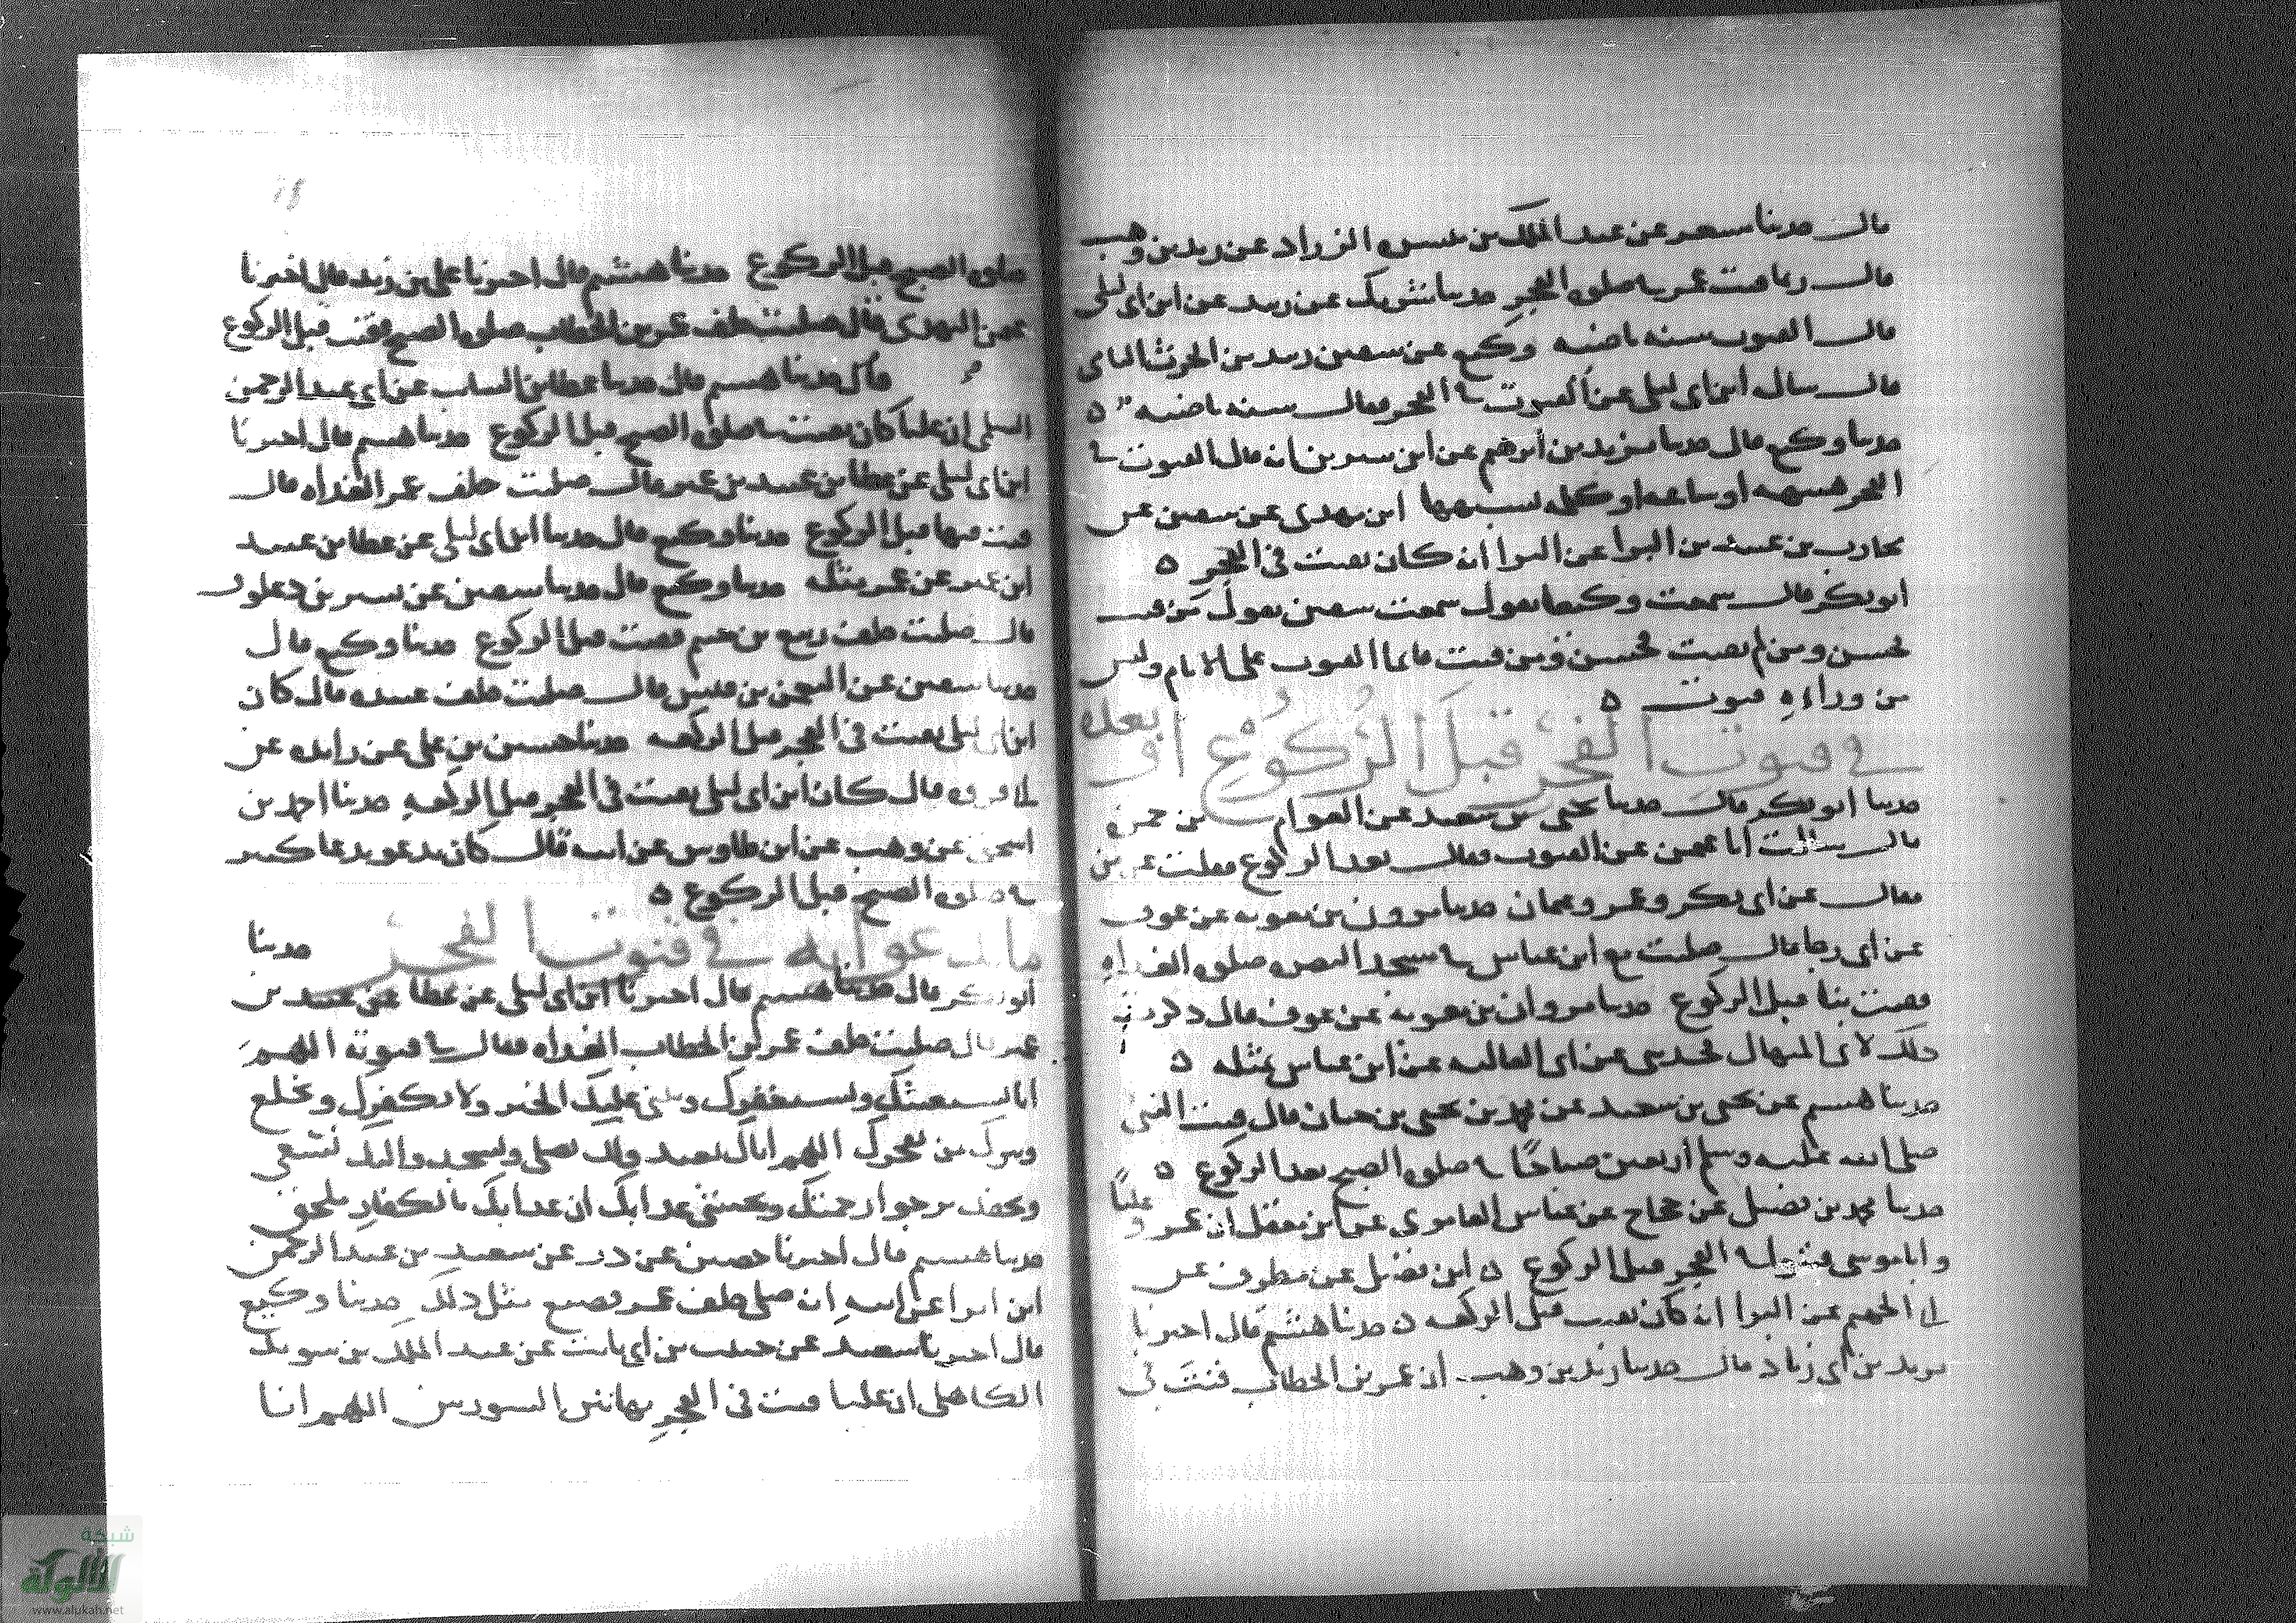 قال حدثنا مسعر عن عبد الملك بن ميسرة الزراد عن زيد بن وهب
قال ربما قنت عمر في صلوة الفجر حدثنا شريك عن زبيد عن ابن ابي ليلى
قال القنوت سنة ماضية وكيع عن سفين زبيد بن الحرث اليامي
قال سال ابن ابي ليلى عن القنوت في الفجر فقال سنة ماضية ٥
حدثنا وكيع قال حدثنا يزيد بن ابرهيم عن ابن سيرين انه قال القنوت في
الفجر هنيهة او ساعة او كلمة تشبهها ابن مهدي عن سفين عن
محارب بن عبيد بن البرا عن البرا انه كان يقنت في الفجر ٥
ابو بكر قال سمعت وكيعا يقول سمعت سفين يقول من قنت
فحسن ومن لم يقنت فحسن ومن قنت فانما القنوت على الامام وليس
من وراءه قنوت ٥
في قنوت الفجر قبل الركوع او بعده
حدثنا ابو بكر قال حدثنا يحيى بن سعيد عن العوام بن حمزة
قال سالت ابا عثمن عن القنوت فقال بعد الركوع فقلت عن من
فقال عن ابي بكر وعمر وعثمان حدثنا مروان بن معوية عن عوف
عن ابي رجا قال صليت مع ابن عباس في مسجد البصرة صلوة الغداة
فقنت بنا قبل الركوع حدثنا مروان بن معوية عن عوف قال ذكرت
ذلك لابي المنهال فحدثني عن ابي العالية عن ابن عباس بمثله ٥
حدثنا هشيم عن يحيى بن سعيد عن محمد بن يحيى بن حبان قال قنت النبي
صلى الله عليه وسلم اربعين صباحًا في صلوة الصبح بعد الركوع ٥
حدثنا محمد بن فضيل عن حجاج عن عياش العامري عن ابن مغفل ان عمر و عليًا
وابا موسى قنتوا في الفجر قبل الركوع ٥ ابن فضيل عن مطرف عن
ابي الجهم عن البرا انه كان يقنت قبل الركعة ٥ حدثنا هشيم قال اخبرنا
يزيد بن ابي زياد قال حدثنا زيد بن وهب ان عمر بن الخطاب قنت في
صلوة الصبح قبل الركوع حدثنا هشيم قال اخبرنا علي بن زيد قال اخبرنا
عثمن النهدي قال صليت خلف عمر بن الخطاب صلوة الصبح فقنت قبل الركوع
قال حدثنا هشيم قال حدثنا عطا بن السايب عن ابي عبد الرحمن
السلمي ان عليا كان يقنت في صلوة الصبح قبل الركوع حدثنا هشيم قال اخبرنا
ابن ابي ليلى عن عطا بن عبيد بن عمير قال صليت خلف عمر الغداة قال
قنت فيها قبل الركوع حدثنا وكيع قال حدثنا ابن ابي ليلى عن عطا بن عبيد
ابن عمير عن عمر بمثله حدثنا وكيع قال حدثنا سفين عن نسير بن ذعلوق
قال صليت خلف ربيع بن خثيم فقنت قبل الركوع حدثنا وكيع قال
حدثنا سفين عن النعمن بن قيس قال صليت خلف عبيدة قال كان
ابن ابي ليلى يقنت في الفجر قبل الركعة حدثنا حسين بن علي عن زايدة عن
ابي فروة قال كان ابن ابي ليلى يقنت في الفجر قبل الركعة حدثنا احمد بن
اسحق عن وهب عن ابن طاوس عن ابيه قال كان يدعو بدعا كثير
في صلوة الصبح قبل الركوع ٥
ما يدعوا به في قنوت الفجر حدثنا
ابو بكر قال حدثنا هشيم قال اخبرنا ابن ابي ليلى عن عطا عن عبيد بن
عمير قال صليت خلف عمر بن الخطاب الغداة فقال في قنوته اللهم
انا نستعينك ونستغفرك ونثني عليك الخير ولا نكفرك ونخلع
ونترك من يفجرك اللهم اياك نعبد ولك نصلي ونسجد واليك نسعى
ونحفد نرجوا رحمتك ونخشى عذابك ان عذابك بالكفار ملحق
حدثنا هشيم قال اخبرنا حصين عن ذر عن سعيد بن عبد الرحمن
ابن ابزا عن ابيه انه صلى خلف عمر فصنع مثل ذلك حدثنا وكيع
قال اخبرنا سعيد عن حبيب بن ابي ثابت عن عبد الملك بن سويد
الكاهلي ان عليا قنت في الفجر بهاتين السورتين اللهم انا
شبكة
الألوكة
www.alukah.net